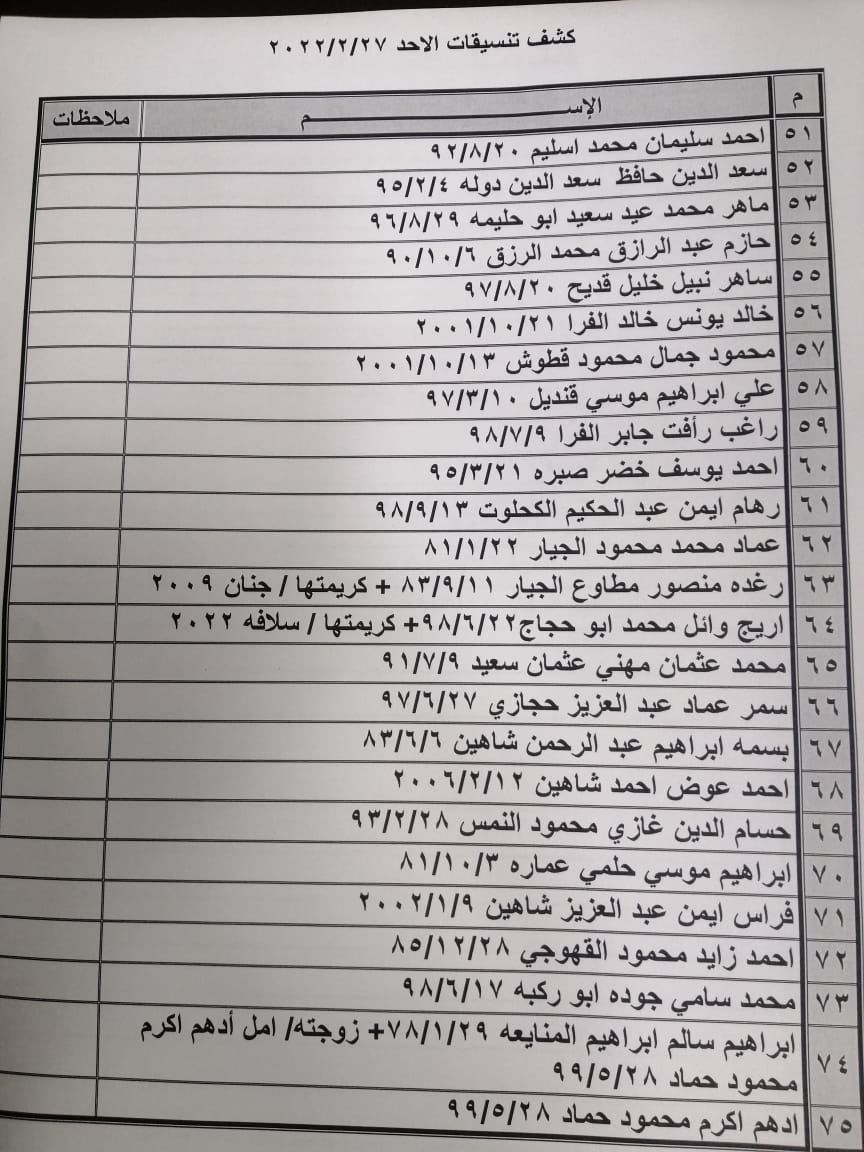 كشف تنسيقات الاحد ٢٠٢٢/٢/٢٧
م الإســـــم ملاحظات
٥١ احمد سليمان محمد اسليم ٩٢/٨/٢٠
٥٢ سعد الدين حافظ سعد الدين دوله ٩٥/٢/٤
٥٣ ماهر محمد عيد سعيد ابو حليمه ٩٦/٨/٢٩
٥٤ حازم عبد الرازق محمد الرزق ٩٠/١٠/٦
٥٥ ساهر نبيل خليل قديح ٩٧/٨/٢٠
٥٦ خالد يونس خالد الفرا ٢٠٠١/١٠/٢١
٥٧ محمود جمال محمود قطوش ٢٠٠١/١٠/١٣
٥٨ علي ابراهيم موسي قنديل ٩٧/٣/١٠
٥٩ راغب رأفت جابر الفرا ٩٨/٧/٩
٦٠ احمد يوسف خضر صبره ٩٥/٣/٢١
٦١ رهام ايمن عبد الحكيم الكحلوت ٩٨/٩/١٣
٦٢ عماد محمد محمود الجيار ٨١/١/٢٢
٦٣ رغده منصور مطاوع الجيار ٨٣/٩/١١ + كريمتها / جنان ٢٠٠٩
٦٤ اريج وائل محمد ابو حجاج٩٨/٦/٢٢+ كريمتها / سلافه ٢٠٢٢
٦٥ محمد عثمان مهني عثمان سعيد ٩١/٧/٩
٦٦ سمر عماد عبد العزيز حجازي ٩٧/٦/٢٧
٦٧ بسمه ابراهيم عبد الرحمن شاهين ٨٣/٦/٦
٦٨ احمد عوض احمد شاهين ٢٠٠٦/٢/١٢
٦٩ حسام الدين غازي محمود النمس ٩٣/٢/٢٨
٧٠ ابراهيم موسي حلمي عماره ٨١/١٠/٣
٧١ فراس ايمن عبد العزيز شاهين ٢٠٠٢/١/٩
٧٢ احمد زايد محمود القهوجي ٨٥/١٢/٢٨
٧٣ محمد سامي جوده ابو ركبه ٩٨/٦/١٧
٧٤ ابراهيم سالم ابراهيم المنايعه ٧٨/١/٢٩+ زوجته/ امل أدهم اكرم
محمود حماد ٩٩/٥/٢٨
٧٥ ادهم اكرم محمود حماد ٩٩/٥/٢٨